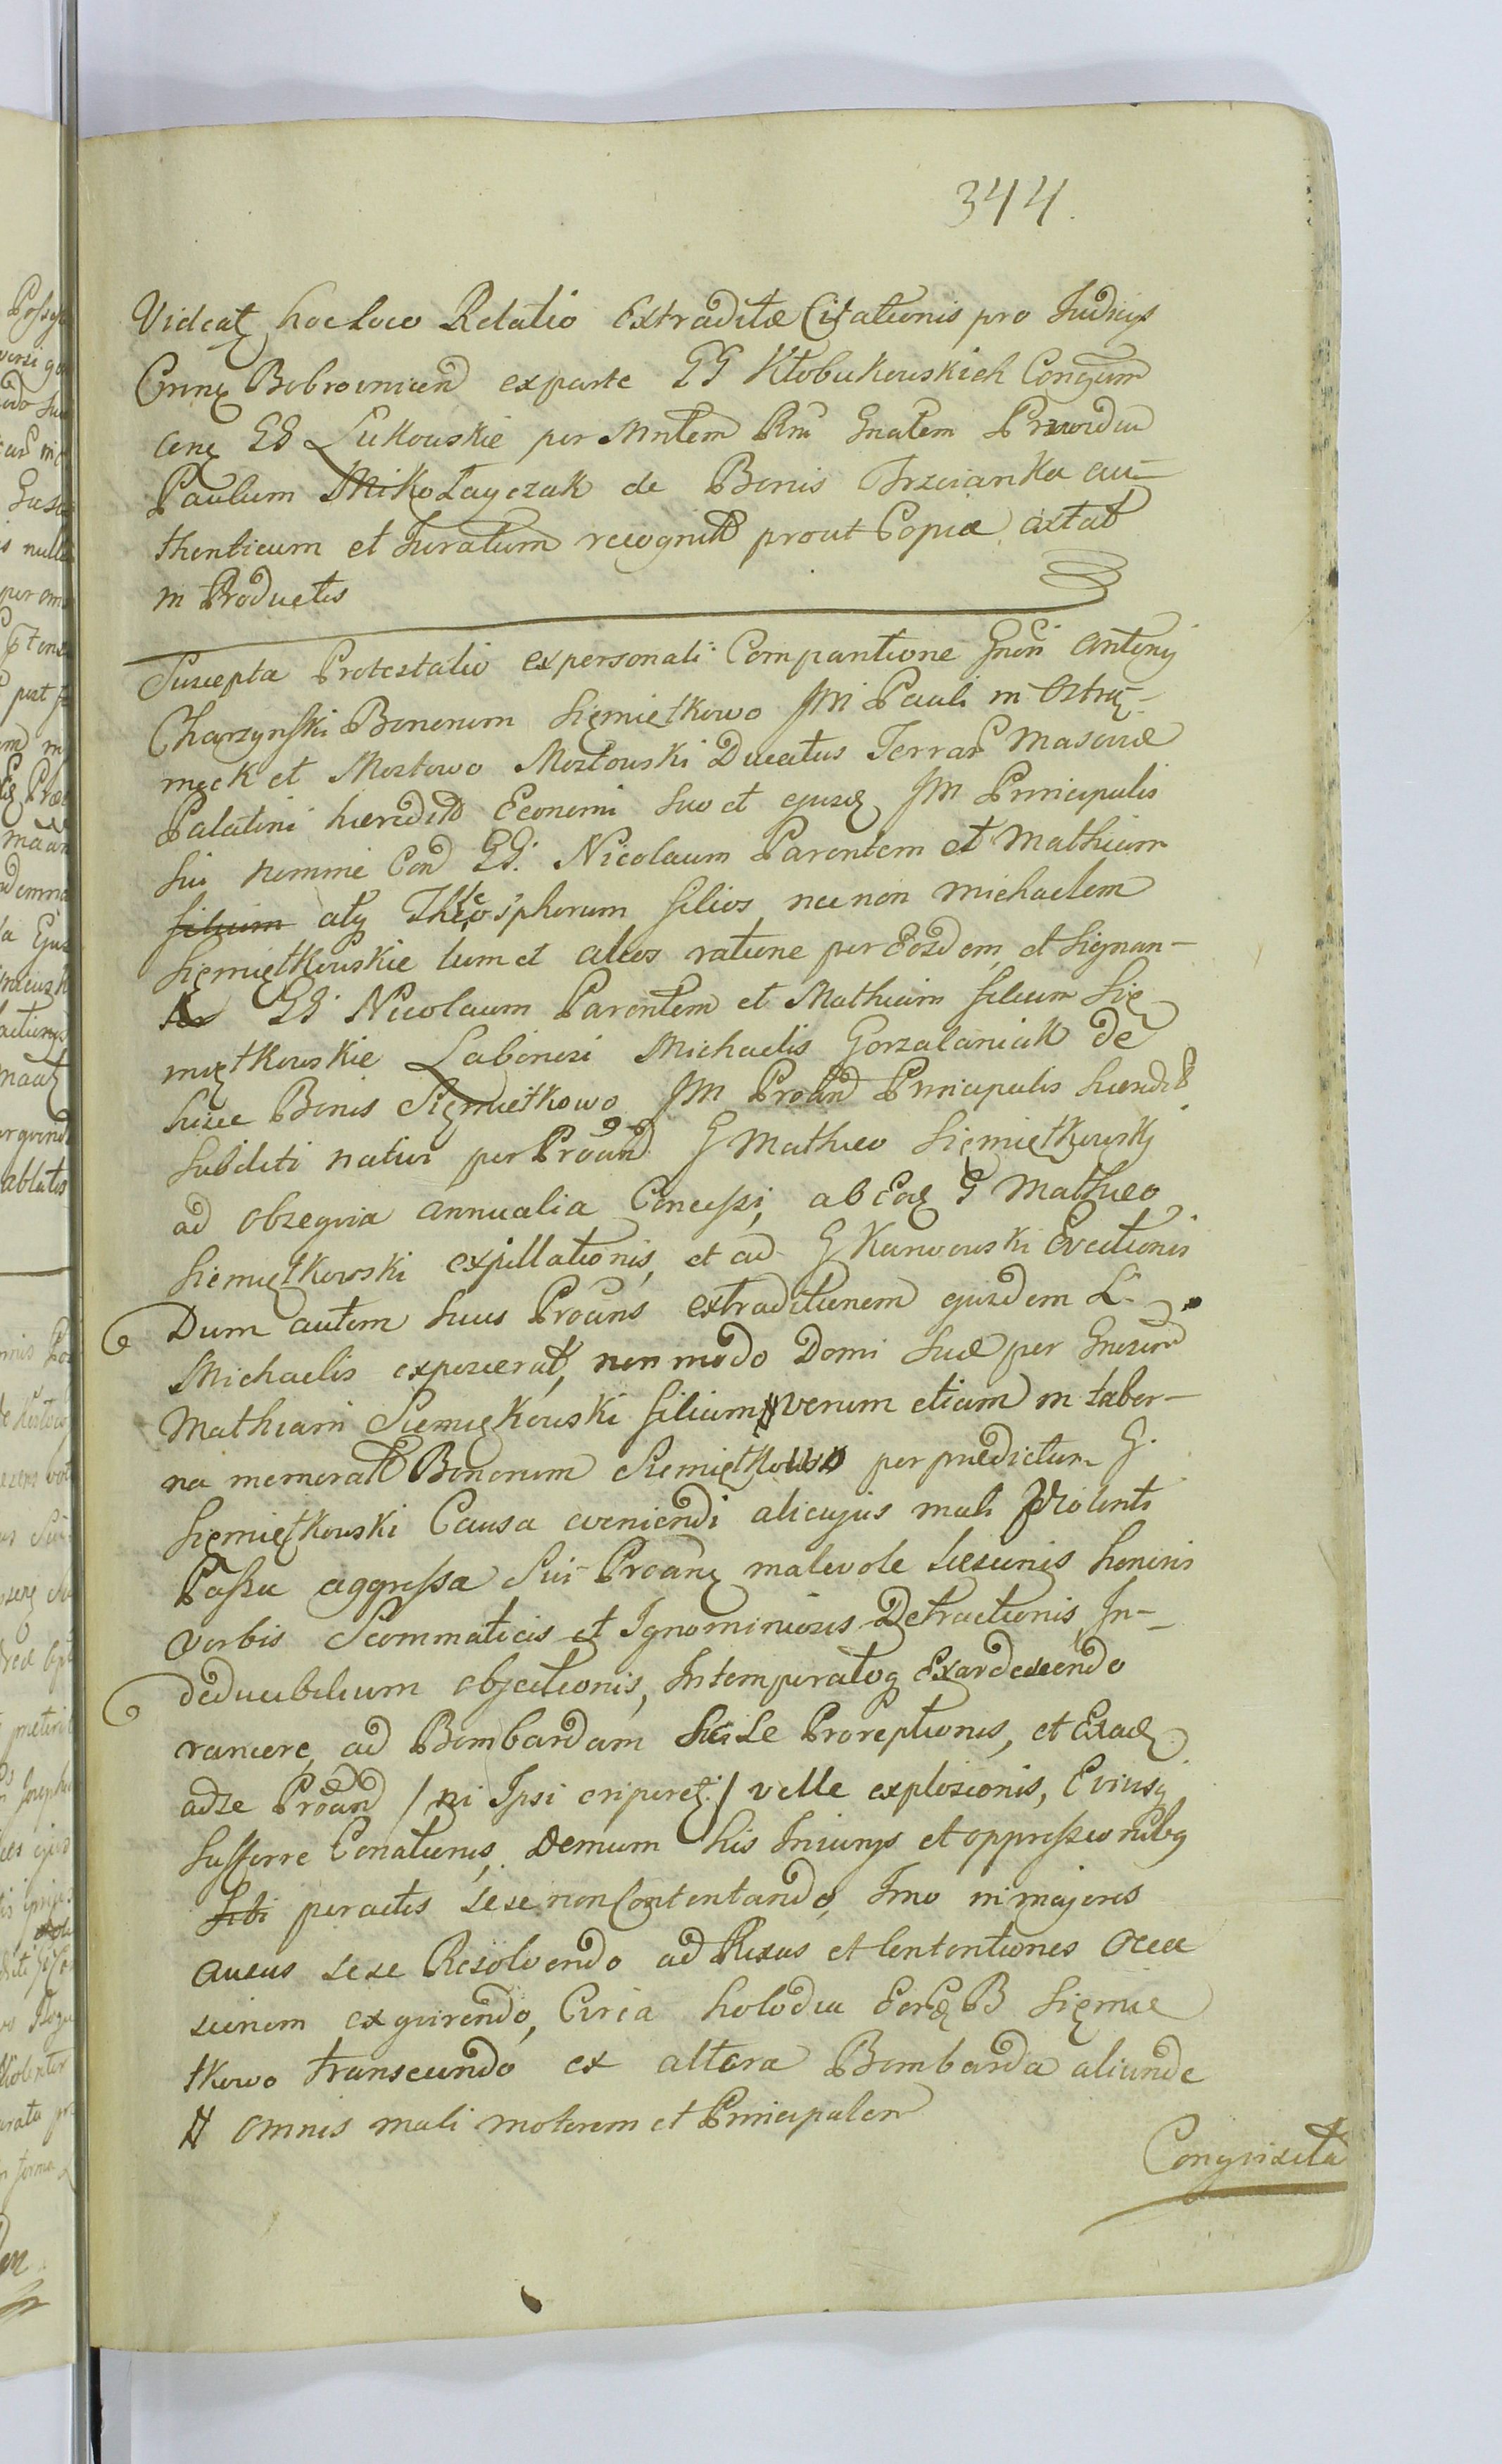 344.
Videatʒ hoc loco Relatio Extraditæ Citationis pro Judicijs
Bobrovnicen exparte GG Kłobukowskich Conjgum
conʒ GG Łukowskie per Mntem Rni Gnalem
Paulum Mikołayczak de Bonis Trzcianka au-
thenticum et Juratum recognit prout Copia extat
in Productis
Suscepta Protestatio ex personali Compantione Gnosi Antonij
Charzynski Bonorum Siemiętkowo JM Pauli in Ostrą-
męck et Mostowo Mostowski Ducatus Terrar Masoviæ
Palatini hæredit Economi suo et ejusdʒ JM Principalis
sui nomine Con GG. Nicolaum Parentem et Mathiam
filium atq Thelesphorum filios nec non Michaelem
Siemiętkowskie tum et alios ratione per Eosdem, et Signan-
ter GG Nicolaum Parentem et Mathiam filium Się-
miętkowskie Laboriosi Michaelis Gorzalaniak de
hisce Bonis Siemiętkowo JM Proan Principalis hæredit
Subditi nativi per Proan G Mathæo Siemiętkowski
ad obsequia annualia Concessi, ab Eodʒ G Mathæo
Siemiętkowski expillationis, et ad G Karwowski Evectionis
Dum autem suus Proans extraditionem ejusdem L.
Michaelis exposcerat, non modo Domi Suæ per Gnosum
Mathiam Siemiękowski filium # verum etiam in taber-
na memorat Bonorum Siemiętkowo per prædictum G.
Siemiętkowski Causa eveniendi alicujus mali Violenti
Passu aggressa Sui Proanʒ malevole Læsionis honoris
verbis Scommaticis et Ignominiosis Detractionis In-
deducibilium objectionis, Intemperatoq Exardescendo
rancore, ad Bombardam Se Proreptionis, et Exadʒ
adse Proan / ni Ipsi eriperetʒ / velle explosionis,
Sufferre Conationis, Demum his Injurijs et oppressionibq
Sibi peractis sese non Contentando, Imo in majores
ausus sese Resolvendo ad Rixas et Contentiones occa
sionem exquirendo, Circa Eorʒ B Siemię
tkowo transeundo ex altera Bombarda aliunde
# omnis mali motorem et Principalem
Conquisita